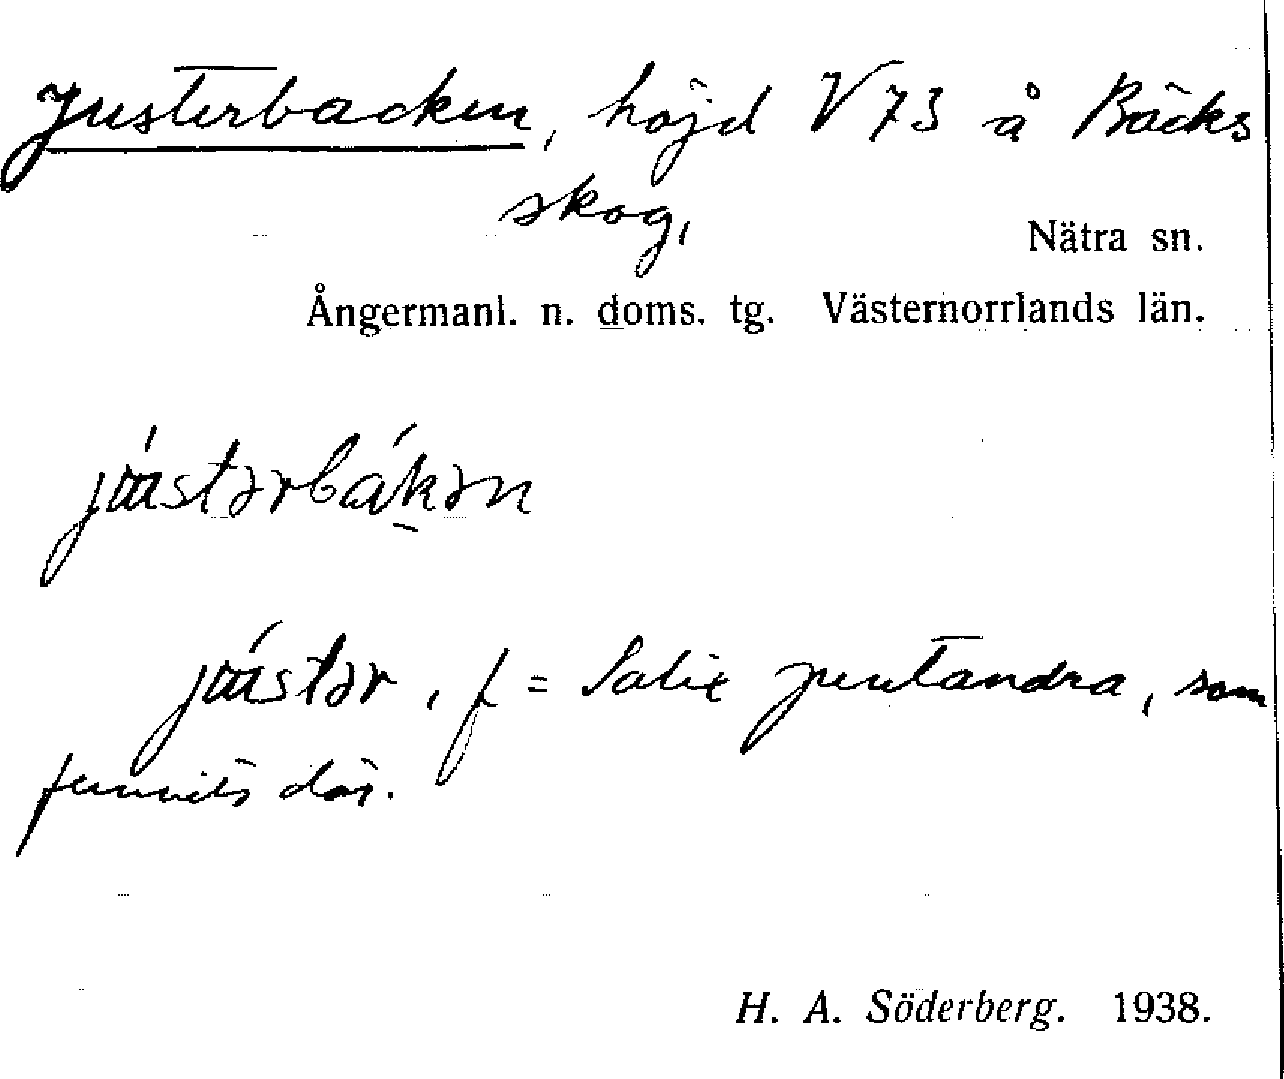 Justerbacken, höjd V 73 å Bäcks
skog,
Nätra sn.
Ångermanl. n. doms. tg. Västernorrlands län.
jʉ́stərbákən
jʉ́stər, f = Salix pentandra, som
funnits där.
H. A. Söderberg. 1938.